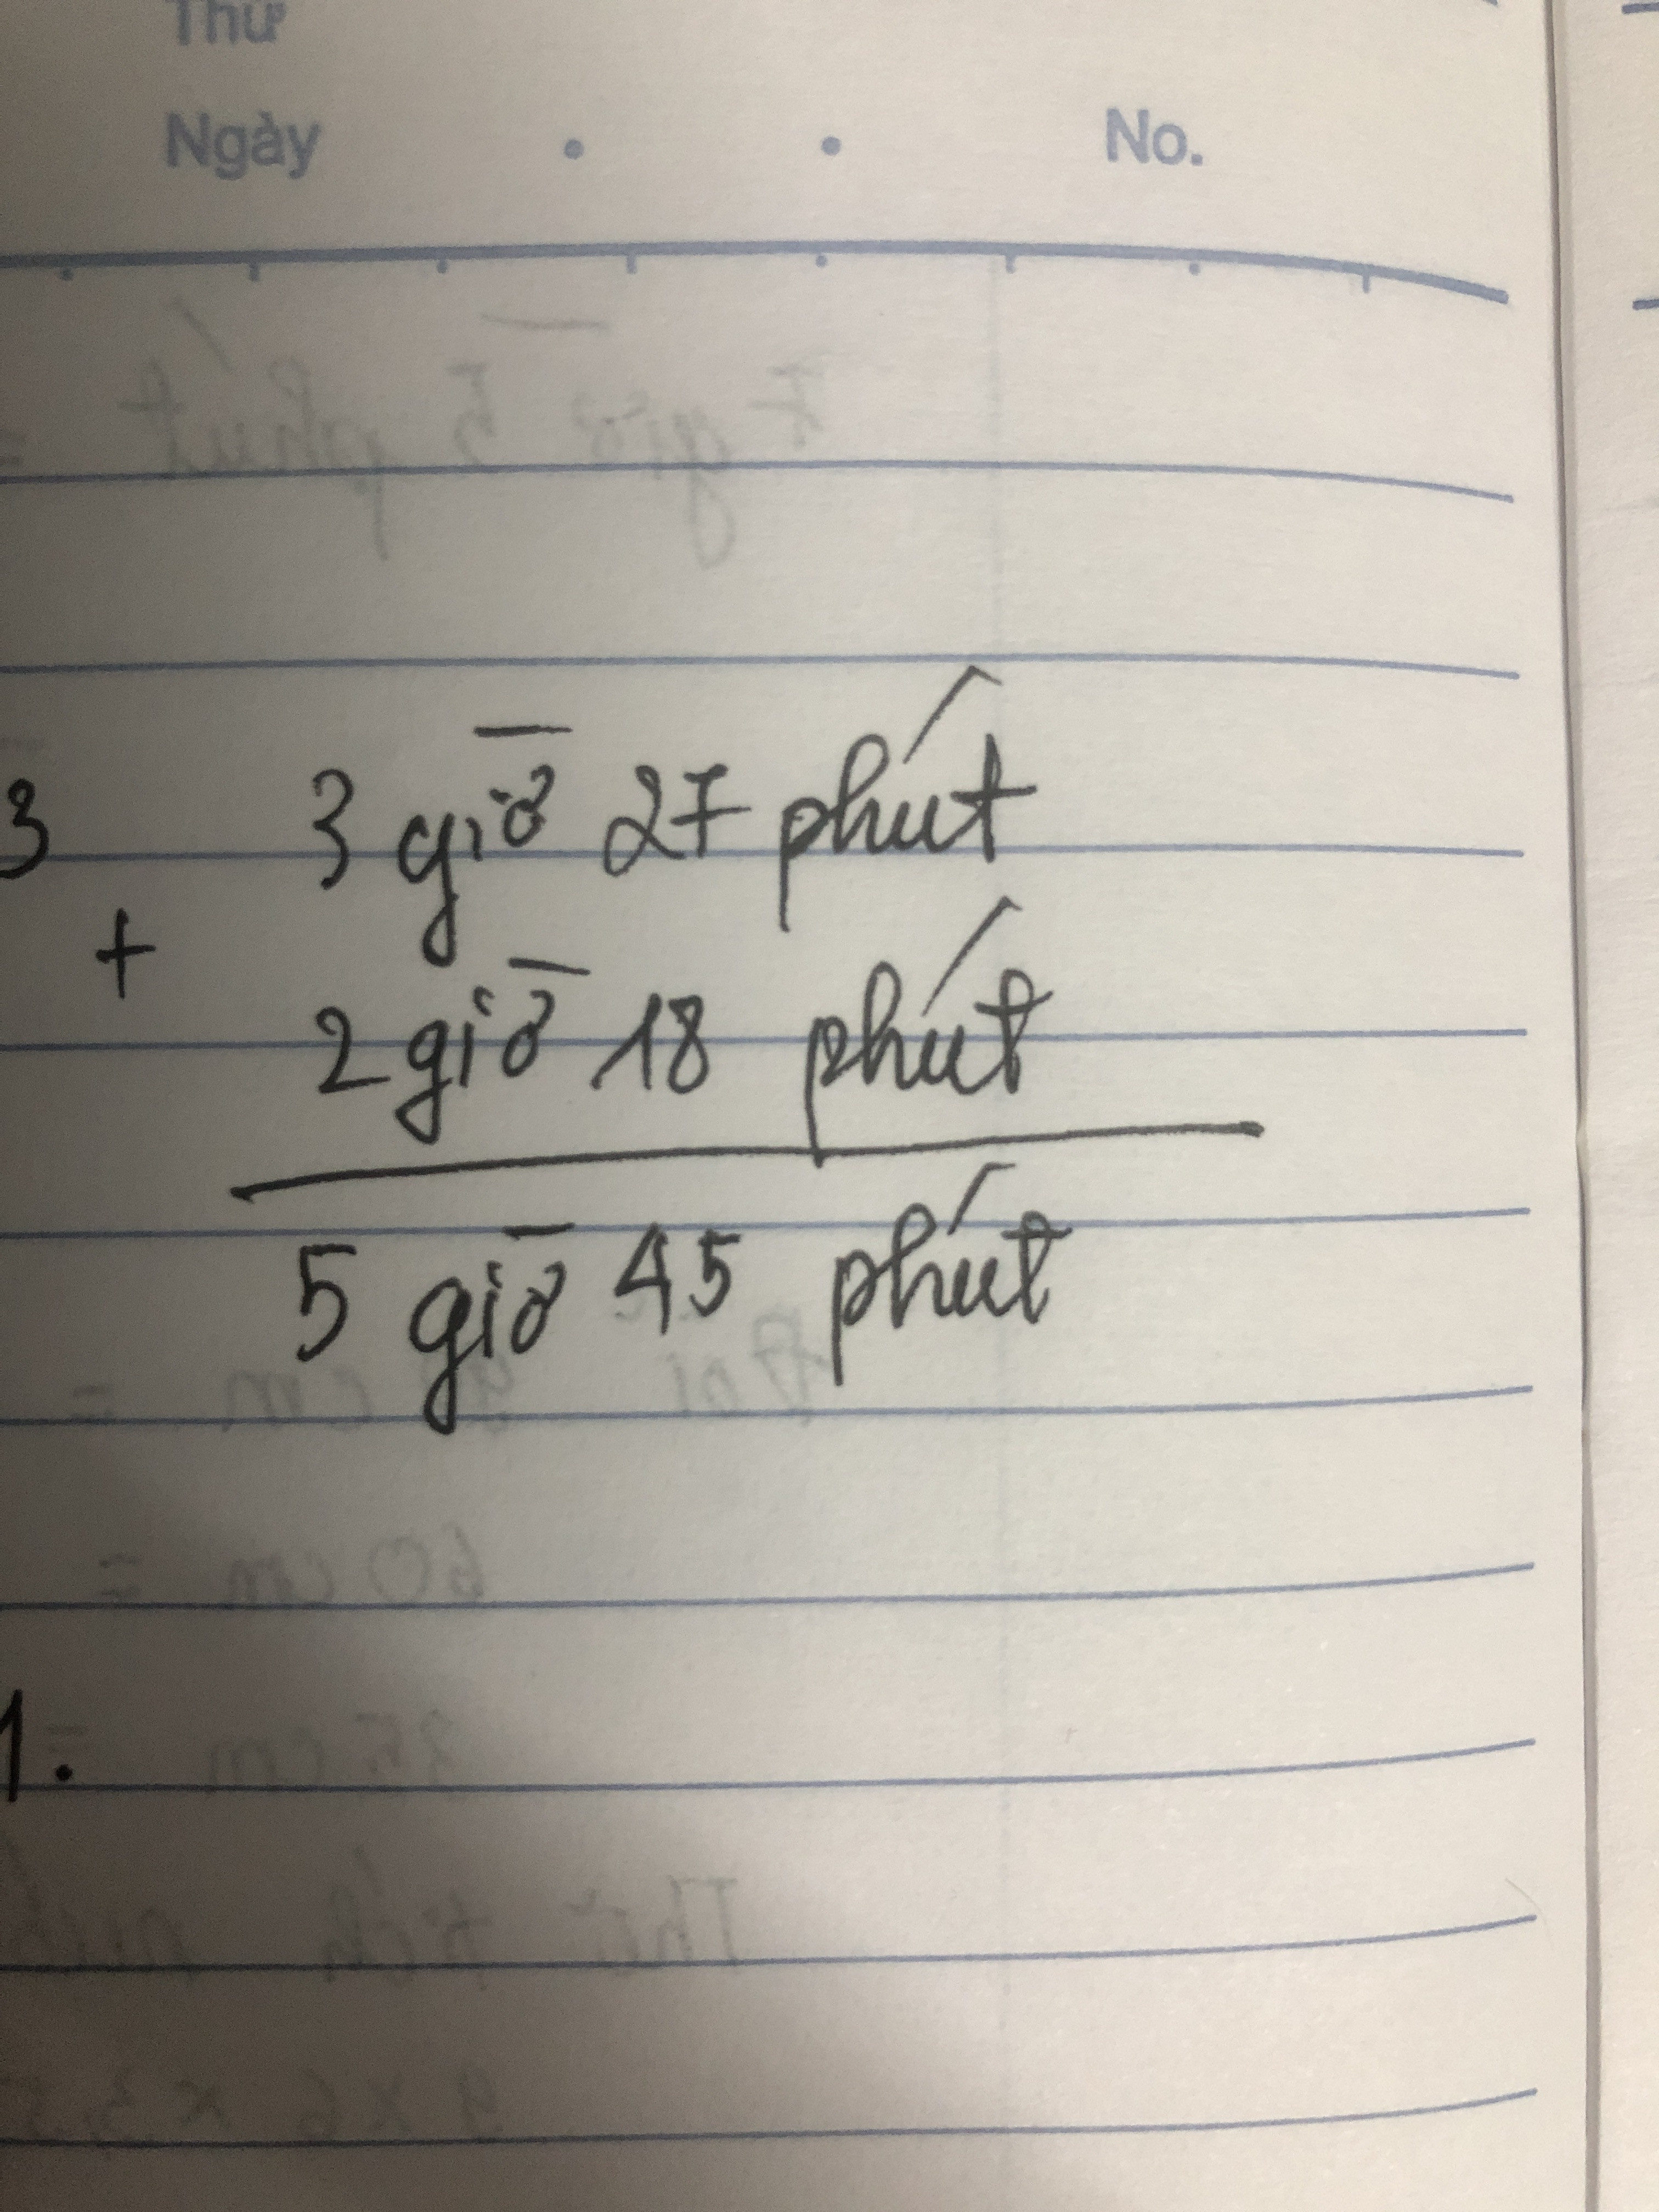 Thứ
Ngày . . No.
3 3 giờ 27 phút
+
2 giờ 18 phút
5 giờ 45 phút
1.